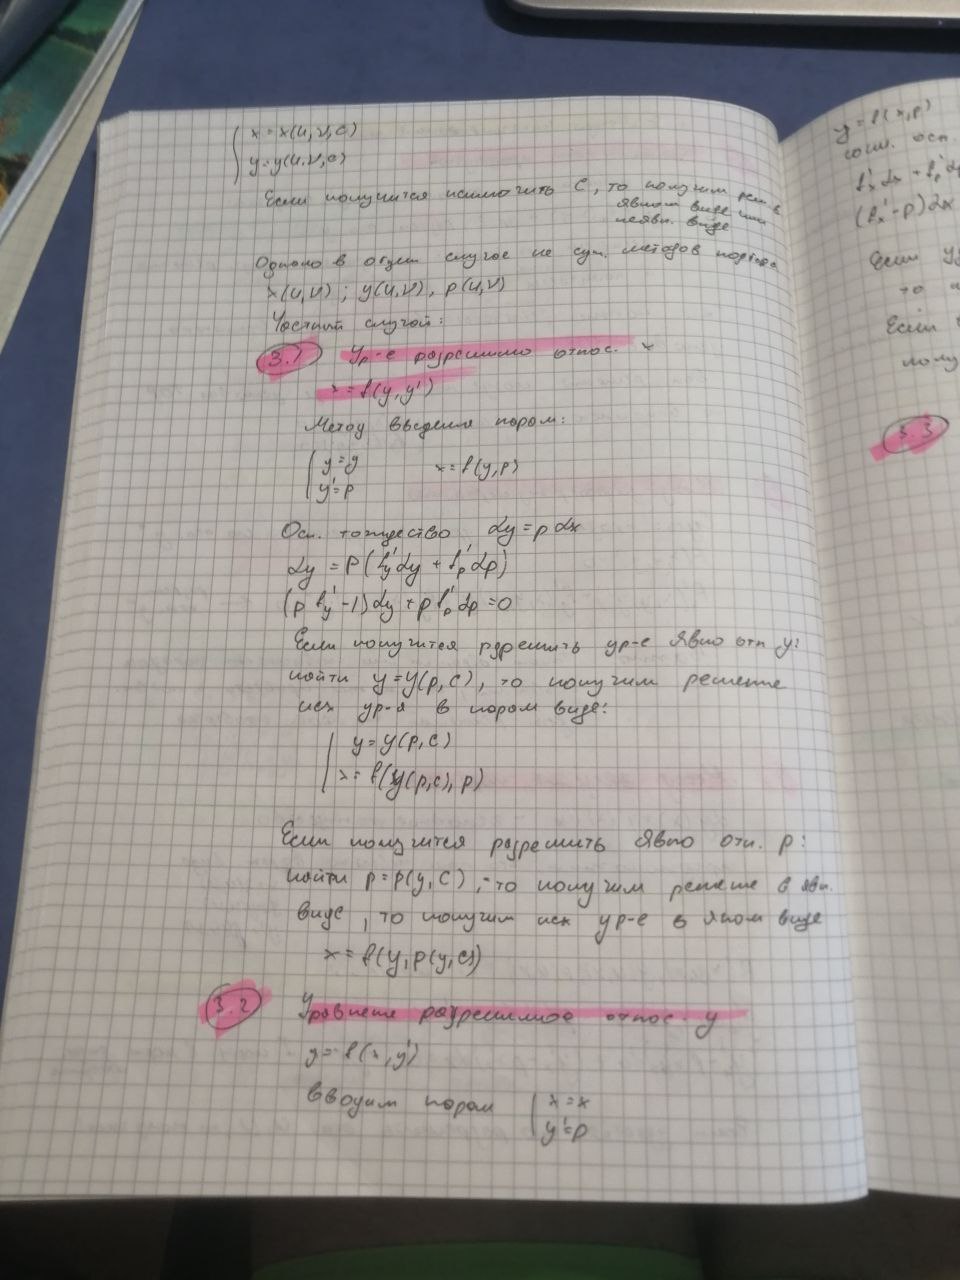 x = x(u,v,c)
y = y(u,v,c)
Если получится исключить C, то получим реш. в
явном виде или
неявн. виде
Однако в общем случае не сущ. методов
x(u,v); y(u,v), p(u,v)
Частный случай:
3.1 Ур-е разрешимо относ. x
x = f(y, y')
Метод введения парам:
y = y x = f(y,p)
y' = p
Осн. тождество dy = p dx
dy = p(f'y dy + f'p dp)
(p f'y - 1)dy + p f'p dp = 0
Если получится разрешить ур-е явно отн y:
найти y = y(p,c), то получим решение
исх ур-я в парам виде:
y = y(p,c)
x = f(y(p,c), p)
Если получится разрешить явно отн. p:
найти p = p(y,c), то получим решение в явн.
виде, то получим исх ур-е в явном виде
x = f(y, p(y,c))
3.2 Уравнение разрешимое относ. y
y = f(x, y')
вводим парам x = x
y' = p
y = f(x,p)
осн.
f'x dx + f'p dp
(f'x - p) dx
Если
то
Если
полу
3.3